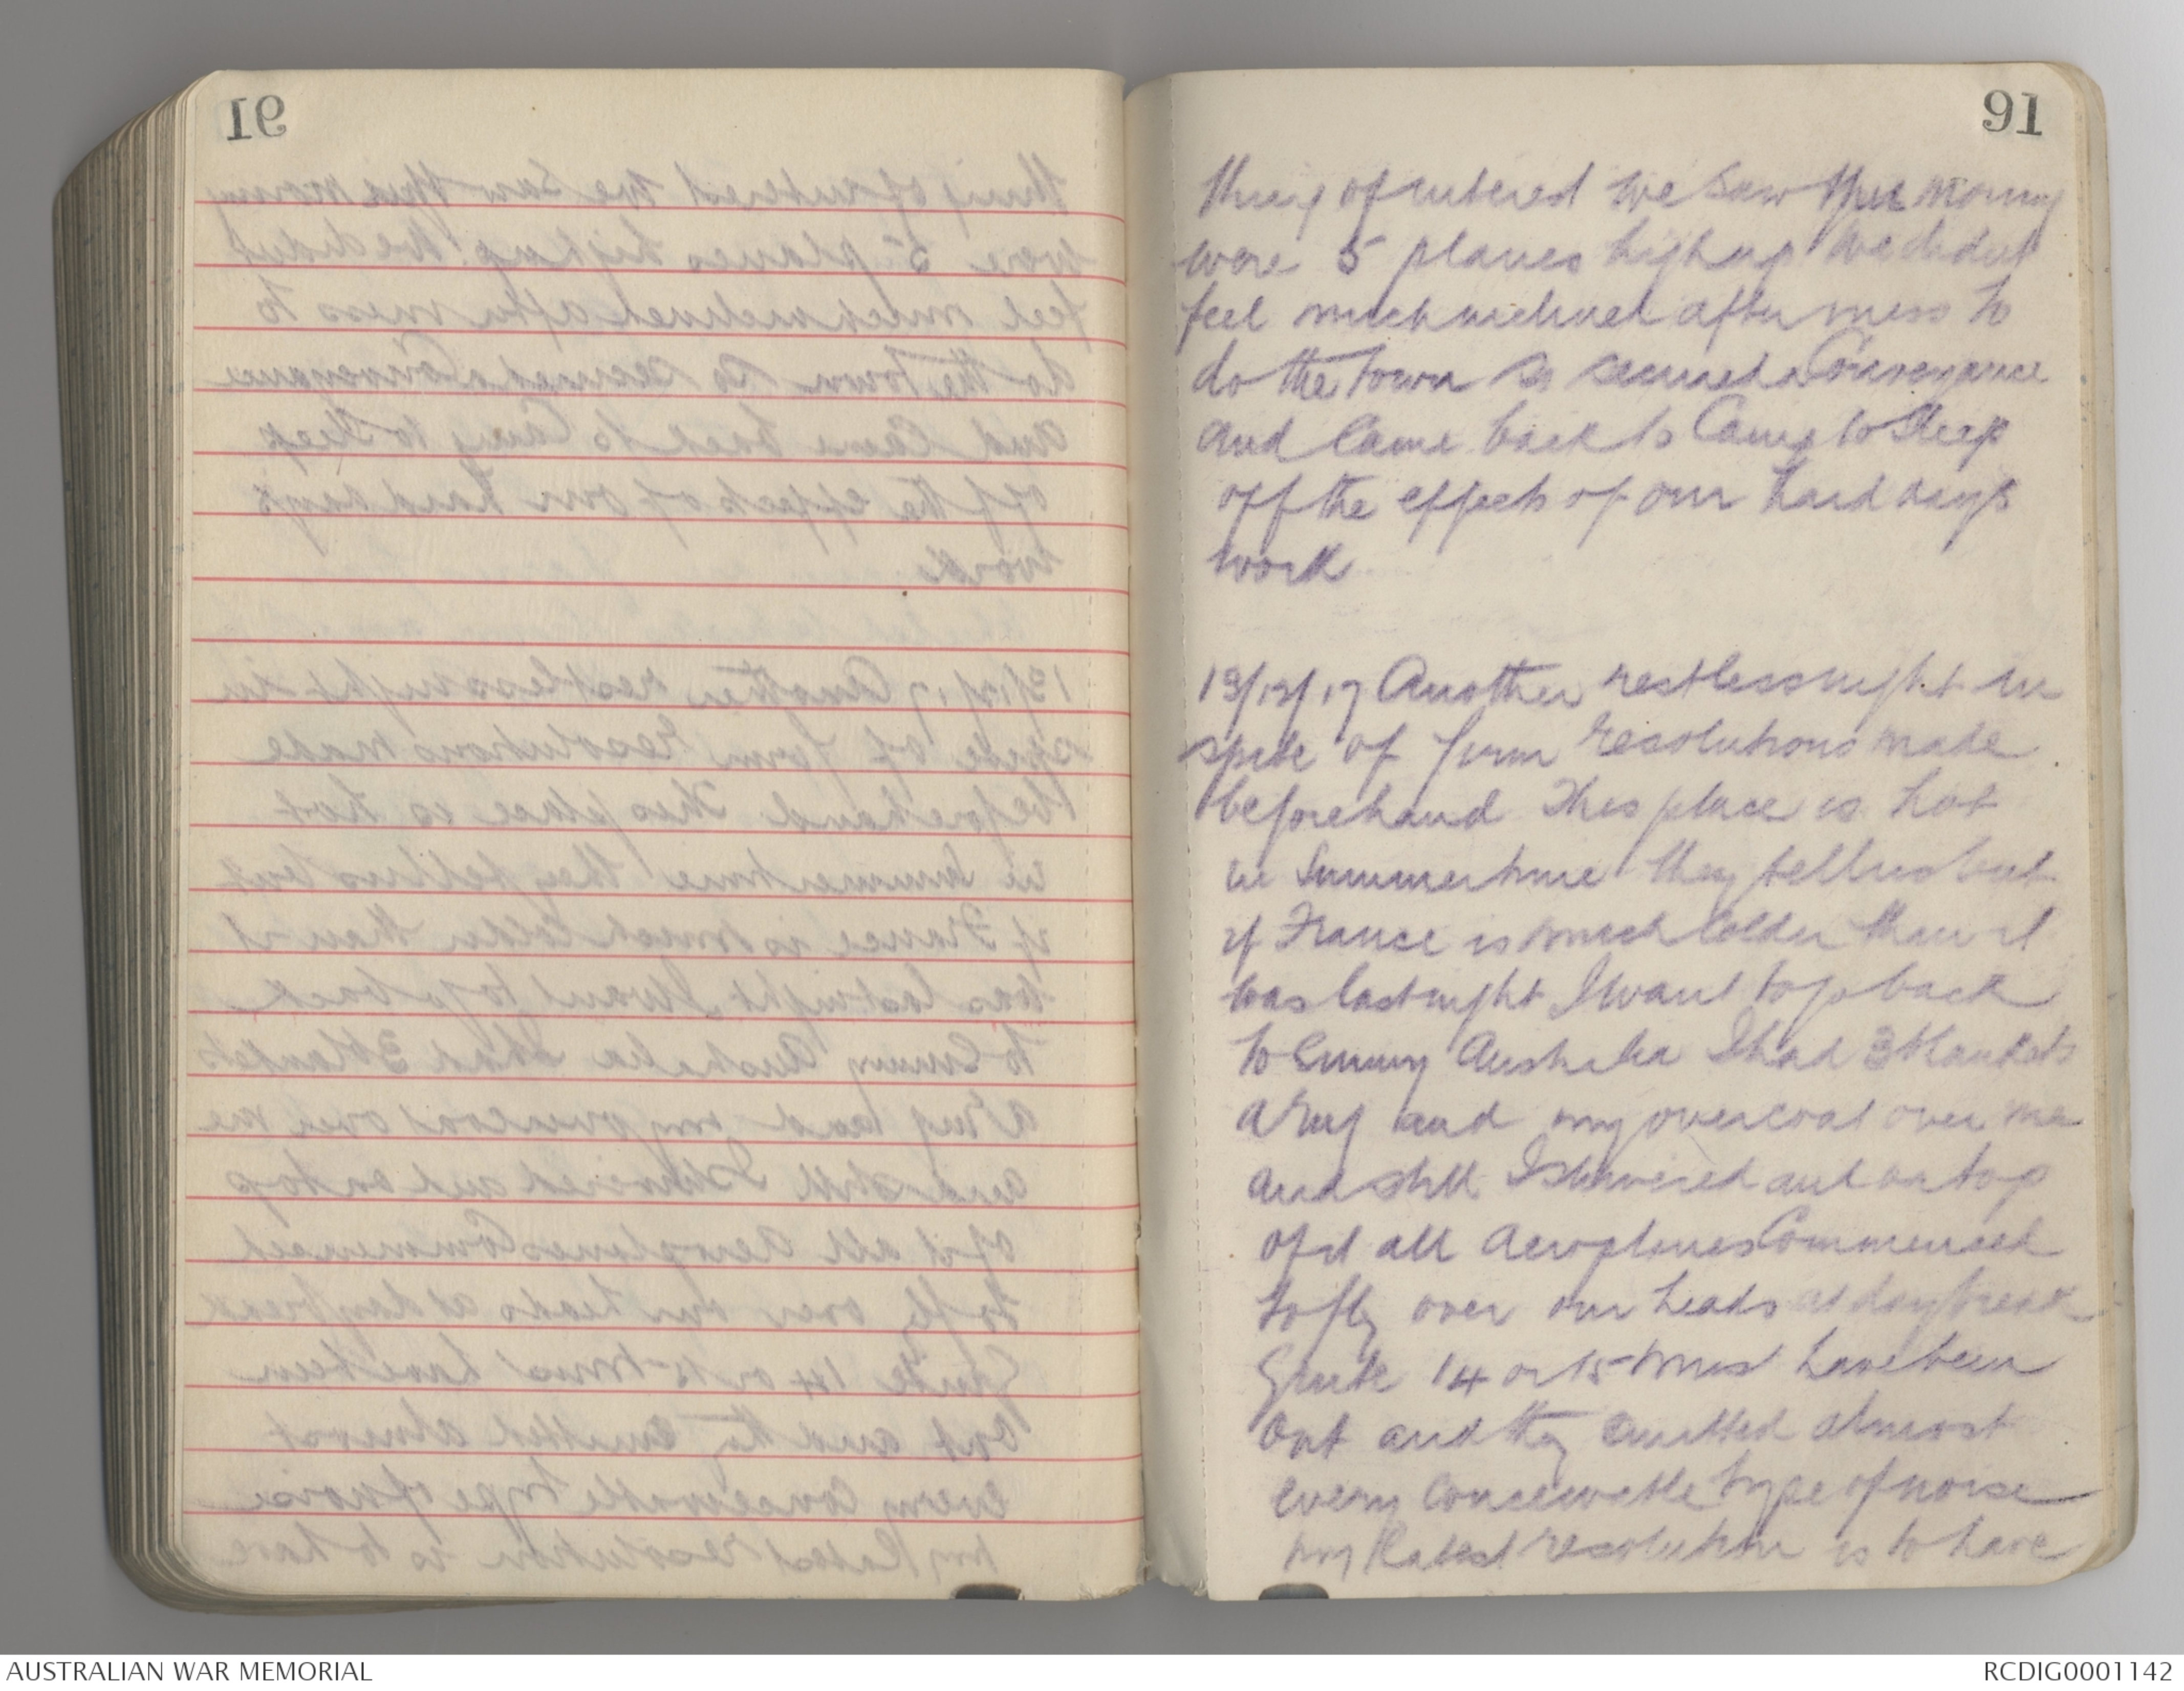 91
thing of interest we saw this morning
were 5 planes high up. We didnt
feel much inclined after mess to
do the town so secured a Conveyance
and Came back to Camp to Sleep
off the effects of our hard days
work

13/12/17 Another restless night in
spite of firm resolutions made
beforehand This place is hot
in Summertime they tell us but
if France is much Colder than it
was last night I want to go back
to Sunny Australia I had 3 blankets
a rug and my overcoat over me
and still I shivered and on top
of it all Aeroplanes Commenced
to fly over our heads at daybreak
Quite 14 or 15 must have been
Out and they emitted almost
every Conceivable type of noise
my latest resolution is to have
AUSTRALIAN WAR MEMORIAL
RCDIG0001142